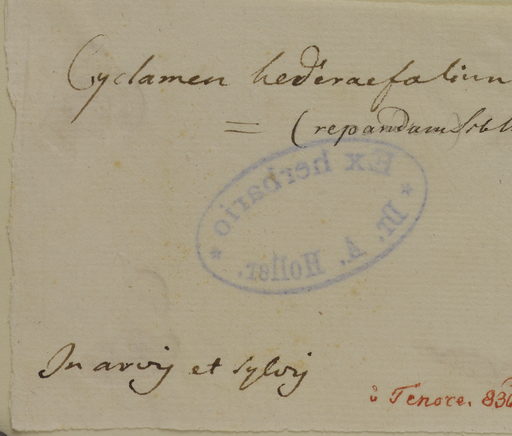 Cyclamen hederaefolium
= (repandum Sibth
Ex herbario
* Dr. A. Holler. *
In arvis et sylvis
Tenore. 836